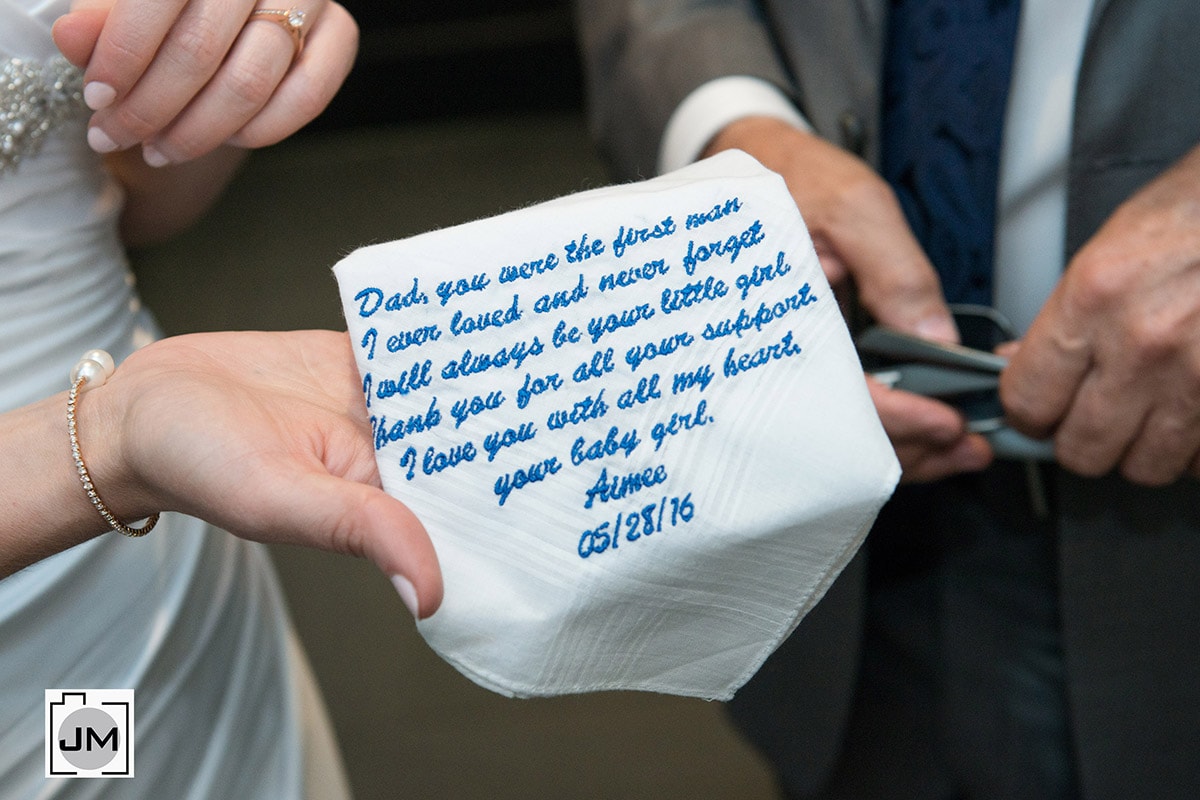 Dad, you were the first man
I ever loved and never forget
I will always be your little girl.
Thank you for all your support.
I love you with all my heart.
your baby girl.
Aimee
05/28/16
JM